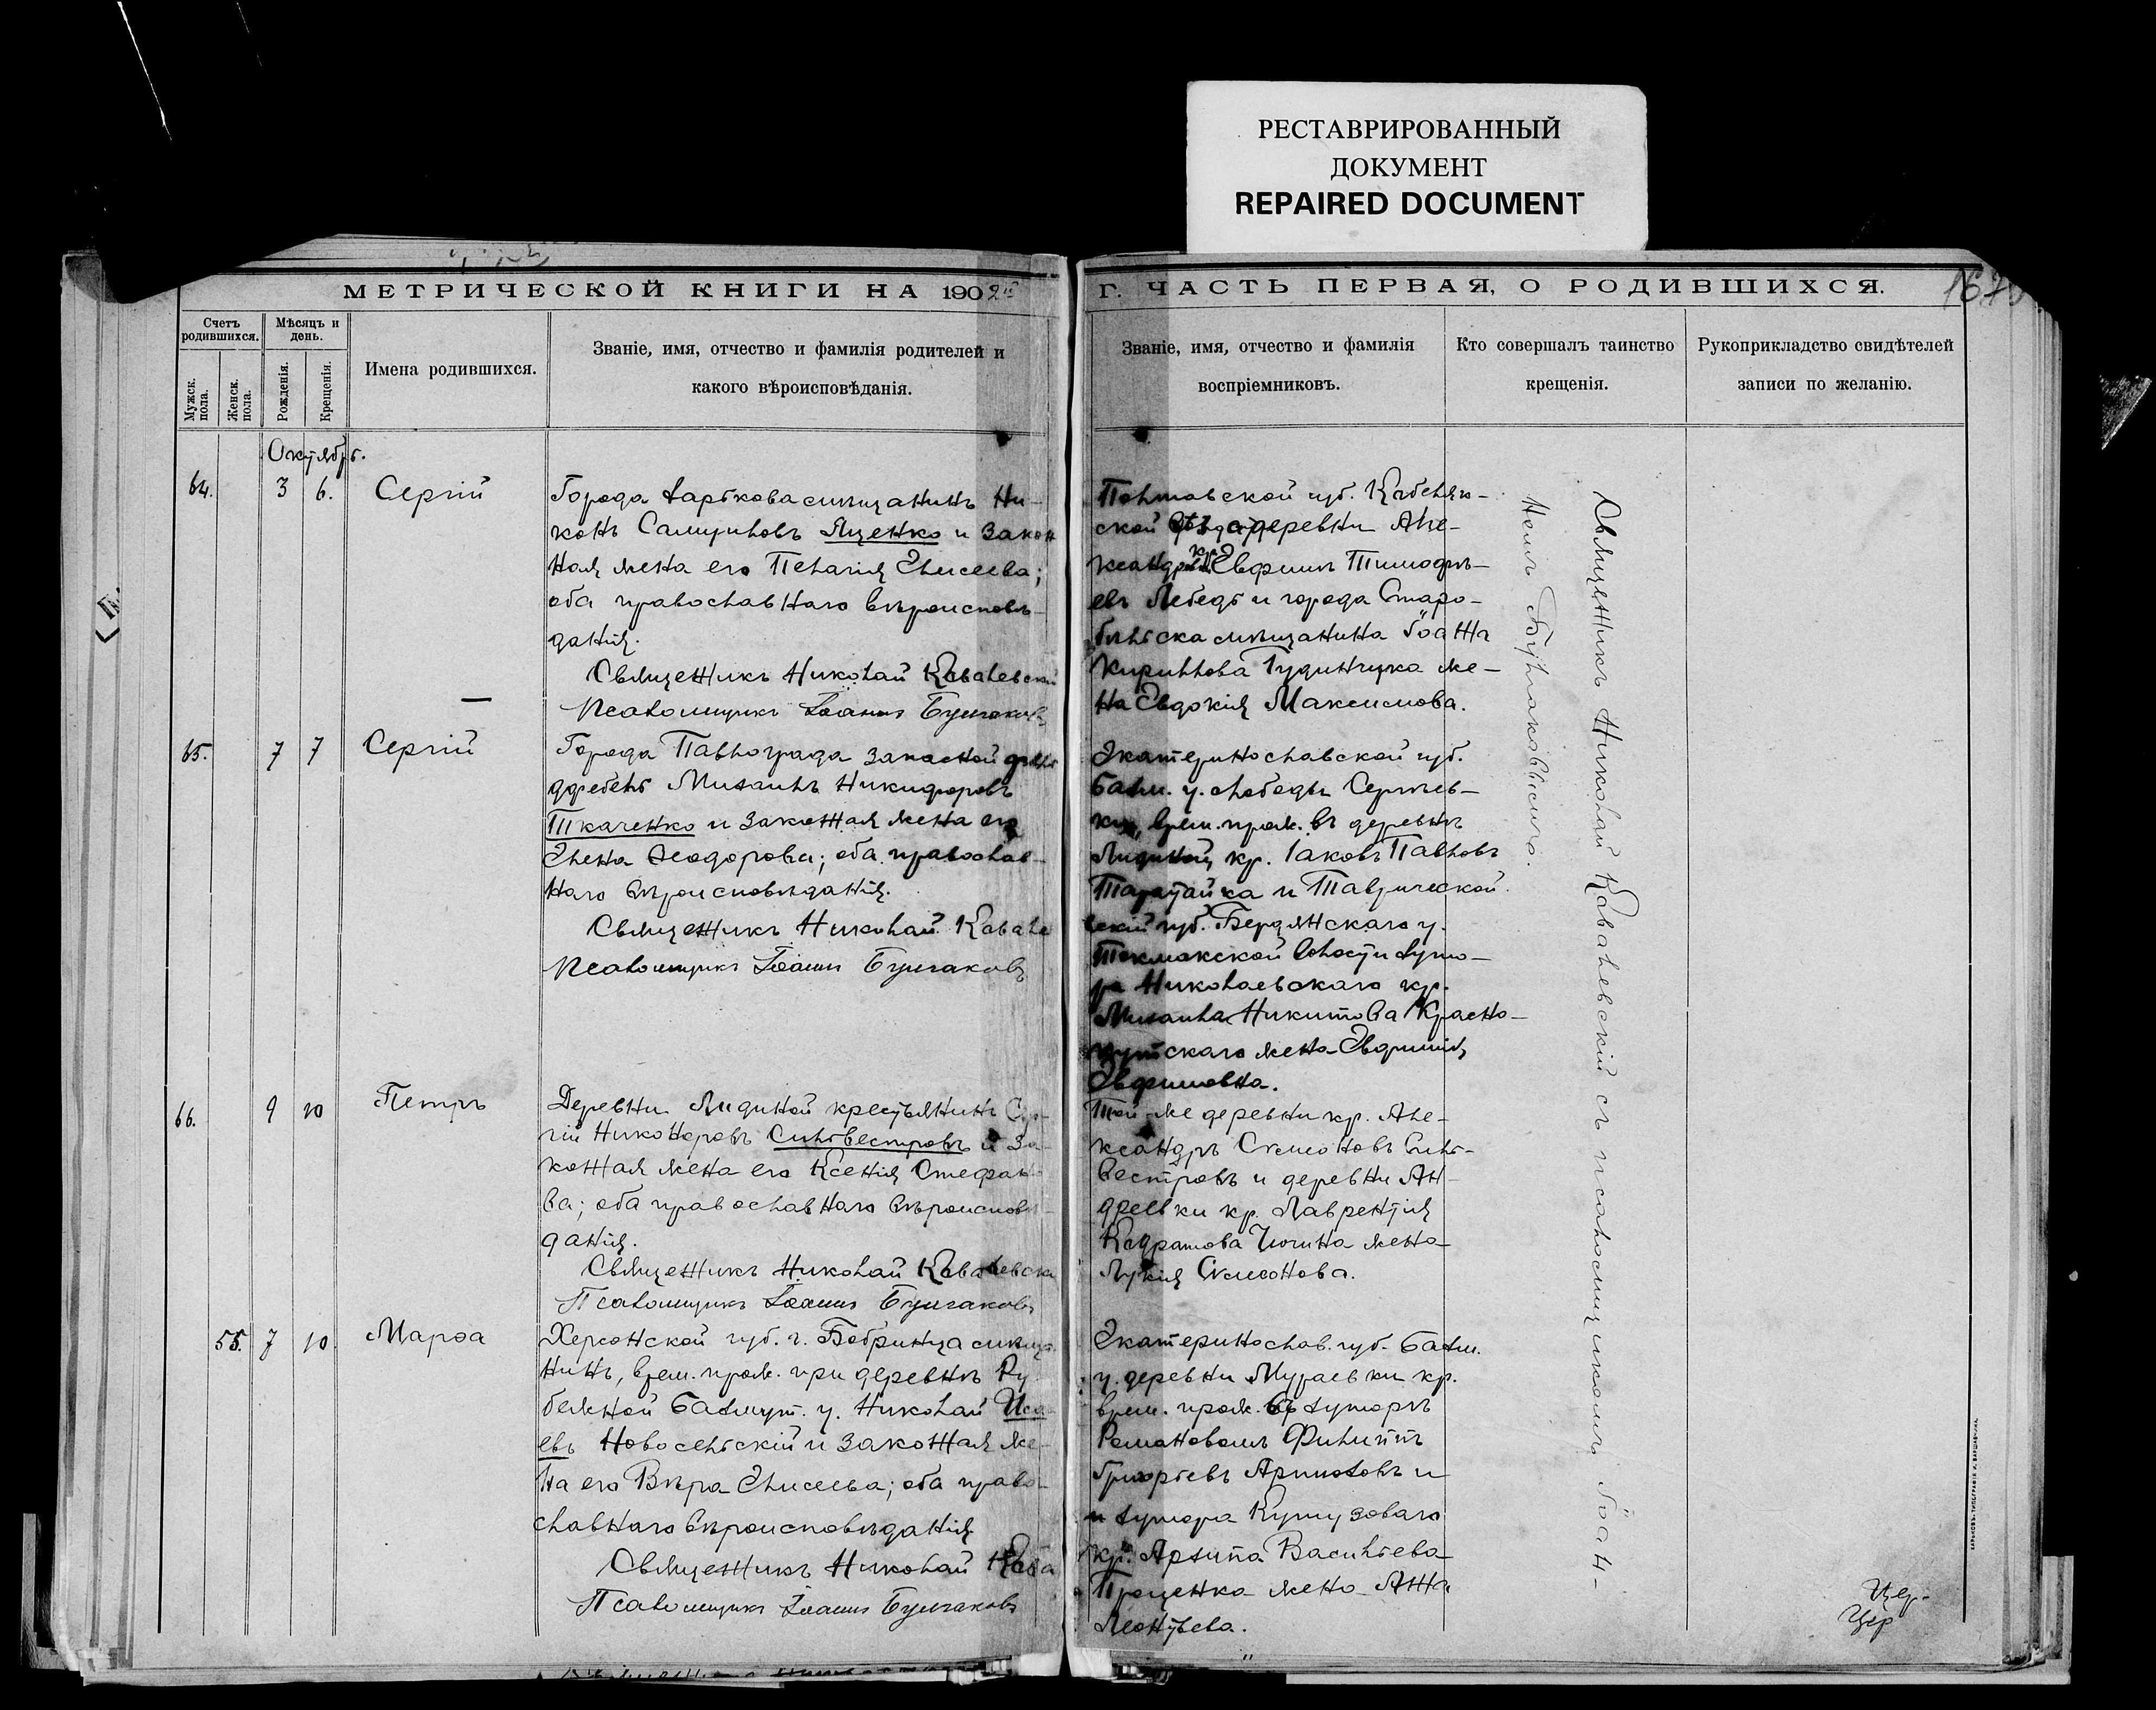 РЕСТАВРИРОВАННЫЙ
ДОКУМЕНТ
REPAIRED DOCUMENT
МЕТРИЧЕСКОЙ КНИГИ НА 190
Г. ЧАСТЬ ПЕРВАЯ, О РОДИВШИХСЯ.
Счетъ родившихся.
Мужск. пола.
Женск. пола.
Мѣсяцъ и день.
Рожденія.
Крещенія.
Имена родившихся.
Званіе, имя, отчество и фамилія родителей и
какого вѣроисповѣданія.
Званіе, имя, отчество и фамилія
воспріемниковъ.
Кто совершалъ таинство
крещенія.
Рукоприкладство свидѣтелей
записи по желанію.
Октябрь.
64. 3 6. Сергій
Города Харькова мѣщанинъ Ни-
конъ Яценко и закон
ная жена его Пелагія Елисеева;
оба православнаго вѣроисповѣ-
данія.
Священникъ Николай Кавалевскій
Псаломщикъ Іоаннъ
Полтавской губ. Кобеляк-
ской деревни Але-
ксандровки кр. Евфимъ Тимофѣ-
евъ Лебедь и города Старо-
бѣльска мѣщанина Іоанна
Кириллова же-
на Евдокія Максимова.
65. 7 7 Сергій
Города Павлограда запасной
Михаилъ Никифоровъ
Ткаченко и законная жена его
Елена Ѳеодорова; оба православ-
наго вѣроисповѣданія.
Священникъ Николай Кавале
Псаломщикъ Іоаннъ
Екатеринославской губ.
Бахм. у. слободы Сергѣев-
ки, врем. прож. въ деревнѣ
Лидиной кр. Іаковъ Павловъ
Таратайка и Таврической
губ. Бердянскаго у.
Токмакской волости хуто-
ра Николаевскаго кр.
Михаила Никитова Красно-
кутскаго жена Евфимія
Евфимовна.
66. 9 10 Петръ
Деревни Лидиной крестьянинъ Сер-
гій Никоноровъ Сильвестровъ и за-
конная жена его Ксенія Стефано-
ва; оба православнаго вѣроисповѣ-
данія.
Священникъ Николай Кавалевскі
Псаломщикъ Іоаннъ
Той же деревни кр. Але-
ксандръ Симеоновъ Силь-
вестровъ и деревни Ан-
дреевки кр. Лаврентія
Кодратова жена
Лукія Симеонова.
55. 7 10. Марѳа
Херсонской губ. г. Бобринца мѣща-
нинъ, врем. прож. при деревнѣ Ру-
бежной Бахмут. у. Николай Иса-
евъ Новосельскій и законная же-
на его Вѣра Елисеева; оба право-
славнаго вѣроисповѣданія.
Священникъ Николай Кава
Псаломщикъ Іоаннъ
Екатеринослав. губ. Бахм.
у. деревни Мураевки кр.
врем. прож. въ хуторѣ
Романовомъ Филиппъ
Григорьевъ и
и хутора Кутузоваго
кр. Архипа Васильева
Проценка жена Анна
Леонтьева.
Священникъ Николай Кавалевскій съ псаломщикомъ Іоан-
номъ